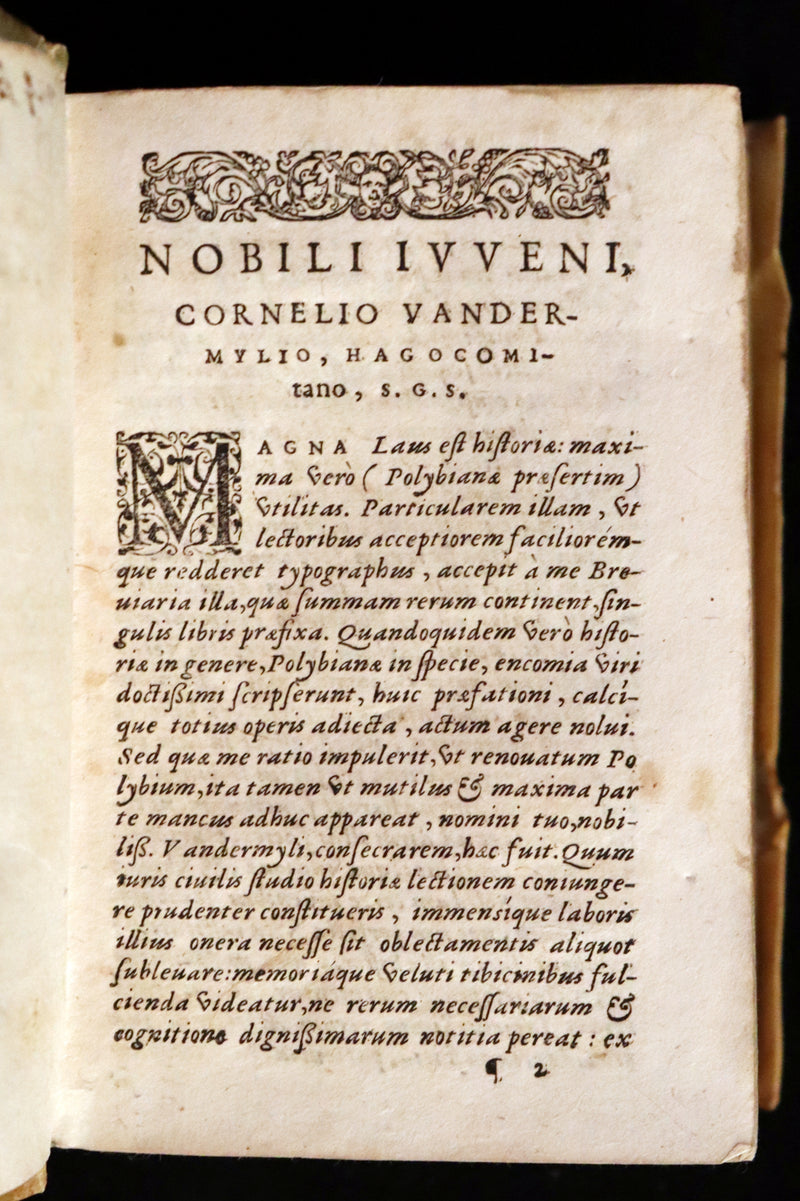 NOBILI IVVENI,
CORNELIO VANDER-
MYLIO, HAGOCOMI-
tano, S. G. S.
MAGNA Laus est historiæ: maxi-
ma verò ( Polybianæ præsertim )
vtilitas. Particularem illam, vt
lectoribus acceptiorem faciliorém-
que redderet typographus, accepit à me Bre-
uiaria illa, quæ summam rerum continent, sin-
gulis libris præfixa. Quandoquidem verò histo-
riæ in genere, Polybianæ in specie, encomia viri
doctißimi scripserunt, huic præfationi, calcí-
que totius operis adiecta, actum agere nolui.
Sed quæ me ratio impulerit, vt renouatum Po
lybium, ita tamen vt mutilus & maxima par
te mancus adhuc appareat, nomini tuo, nobi-
liß. Vandermyli, consecrarem, hæc fuit. Quum
iuris ciuilis studio historiæ lectionem coniunge-
re prudenter constitueris, immensíque laboris
illius onera necesse sit oblectamentis aliquot
subleuare: memoriáque veluti tibicinibus ful-
cienda videatur, ne rerum necessariarum &
cognitione dignißimarum notitia pereat: ex
¶ 2